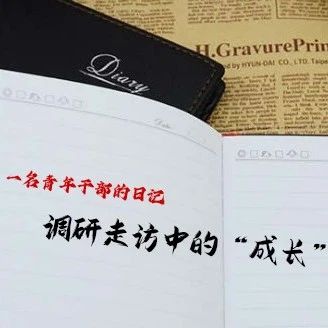 H.GravurePrin
by HYUN-DAI CO., LTD.
Diary
Date
一名青年干部的日记
调研走访中的“成长”